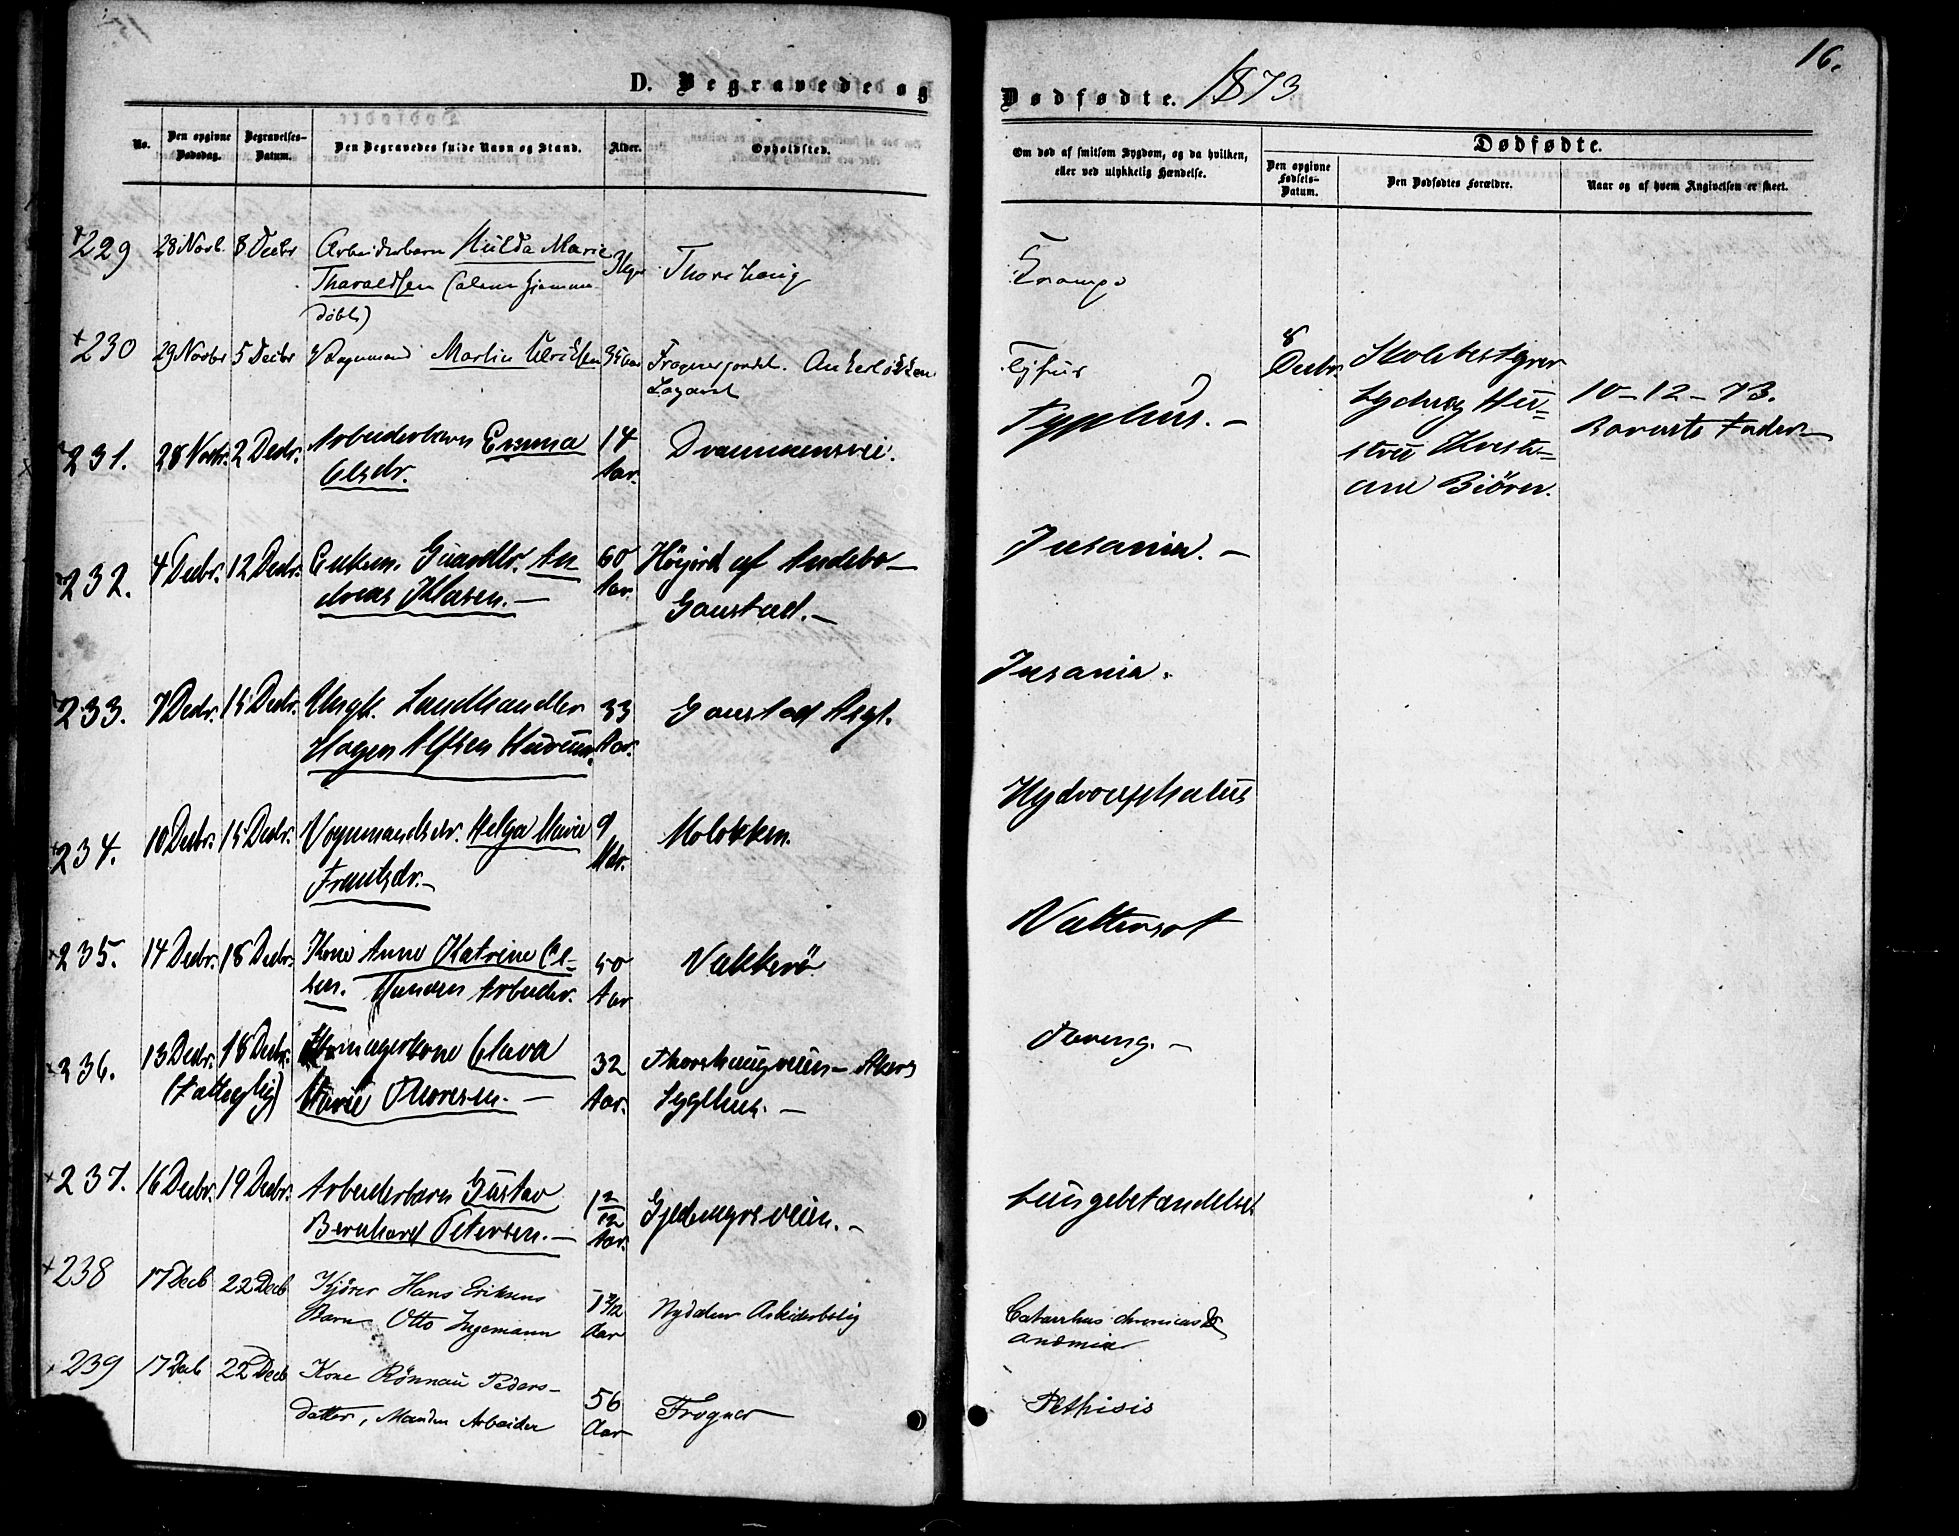 16.
D. Begravede og
Dødfødte. 1873
No.
Den opgivne Dødsdag.
Begravelses-Datum.
Den Begravedes fulde Navn og Stand.
Alder.
Opholdsted.
Om død af smitsom Sygdom, og da hvilken,
eller ved ulykkelig Hændelse.
Dødfødte.
Den opgivne Fødsels-Datum.
Den Dødfødtes Forældre.
Naar og af hvem Angivelsen er skeet.
229 28 Novb. 8 Decbr Arbeiderbarn Hulda Marie
Tharaldsen (alene hjemme
døbt)
Thorshaug
Krampe
230 29 Novbr 5 Decbr Vognmand Martin Ulriksen 35 aar Ankerløkken
Lazaret
Tyfus
8 Decbr. Skolebestyrer
Ludvig
Hu-
stru Kristi-
ane Biörn.
10-12-73.
Barnets Fader
231. 28 Novbr. 2 Decbr. Arbeiderbarn Emma 14 Drammensvei.
Olsdr. Aar.
Typhus. -
232. 4 Decbr. 12 Decbr. Enkem. Gaardbr. An- 60 Höijord af Andebo-
dreas Klasen. - Aar. Gaustad. -
Insania. -
233. 7 Decbr. 15 Decbr. Ungk. Landhandler 33 Gaustad Asyl.
Hagen Alfsen Hurum. Aar.
Insania.
234. 10 Decbr. 15 Decbr. Vognmandsdr. Helga Marie 9 Molökken.
Frantsdr. - Mdr.
Hydrocephalus
235. 14 Decbr. 18 Decbr. Kone Anne Katrine Ol- 50 Vækkerö
sen. Manden Arbeider. Aar
Vattersot
236. 13 Decbr. 18 Decbr. magerkone Olava 32 Thorshaugveien - Akers
(Fattoglig) Marie Thoresen. - Aar. Sygehus. -
Tæring. -
237. 16 Decbr. 19 Decbr. Arbeiderbarn Gustav 1 2/12 Gjeitmyrsveien. -
Bernhard Petersen. - Aar.
Lungebetændelse
238 17 Decb 22 Decb Kjörer Hans Eriksens 1 2/12 Nydalen Arbeiderbolig
Barn Otto Ingemann Aar
Catarrhus chronicus &
anæmia
239 17 Decb 22 Decb Kone Rönnau Peders- 56 Frogner
datter, Manden Arbeider Aar
Pthisis